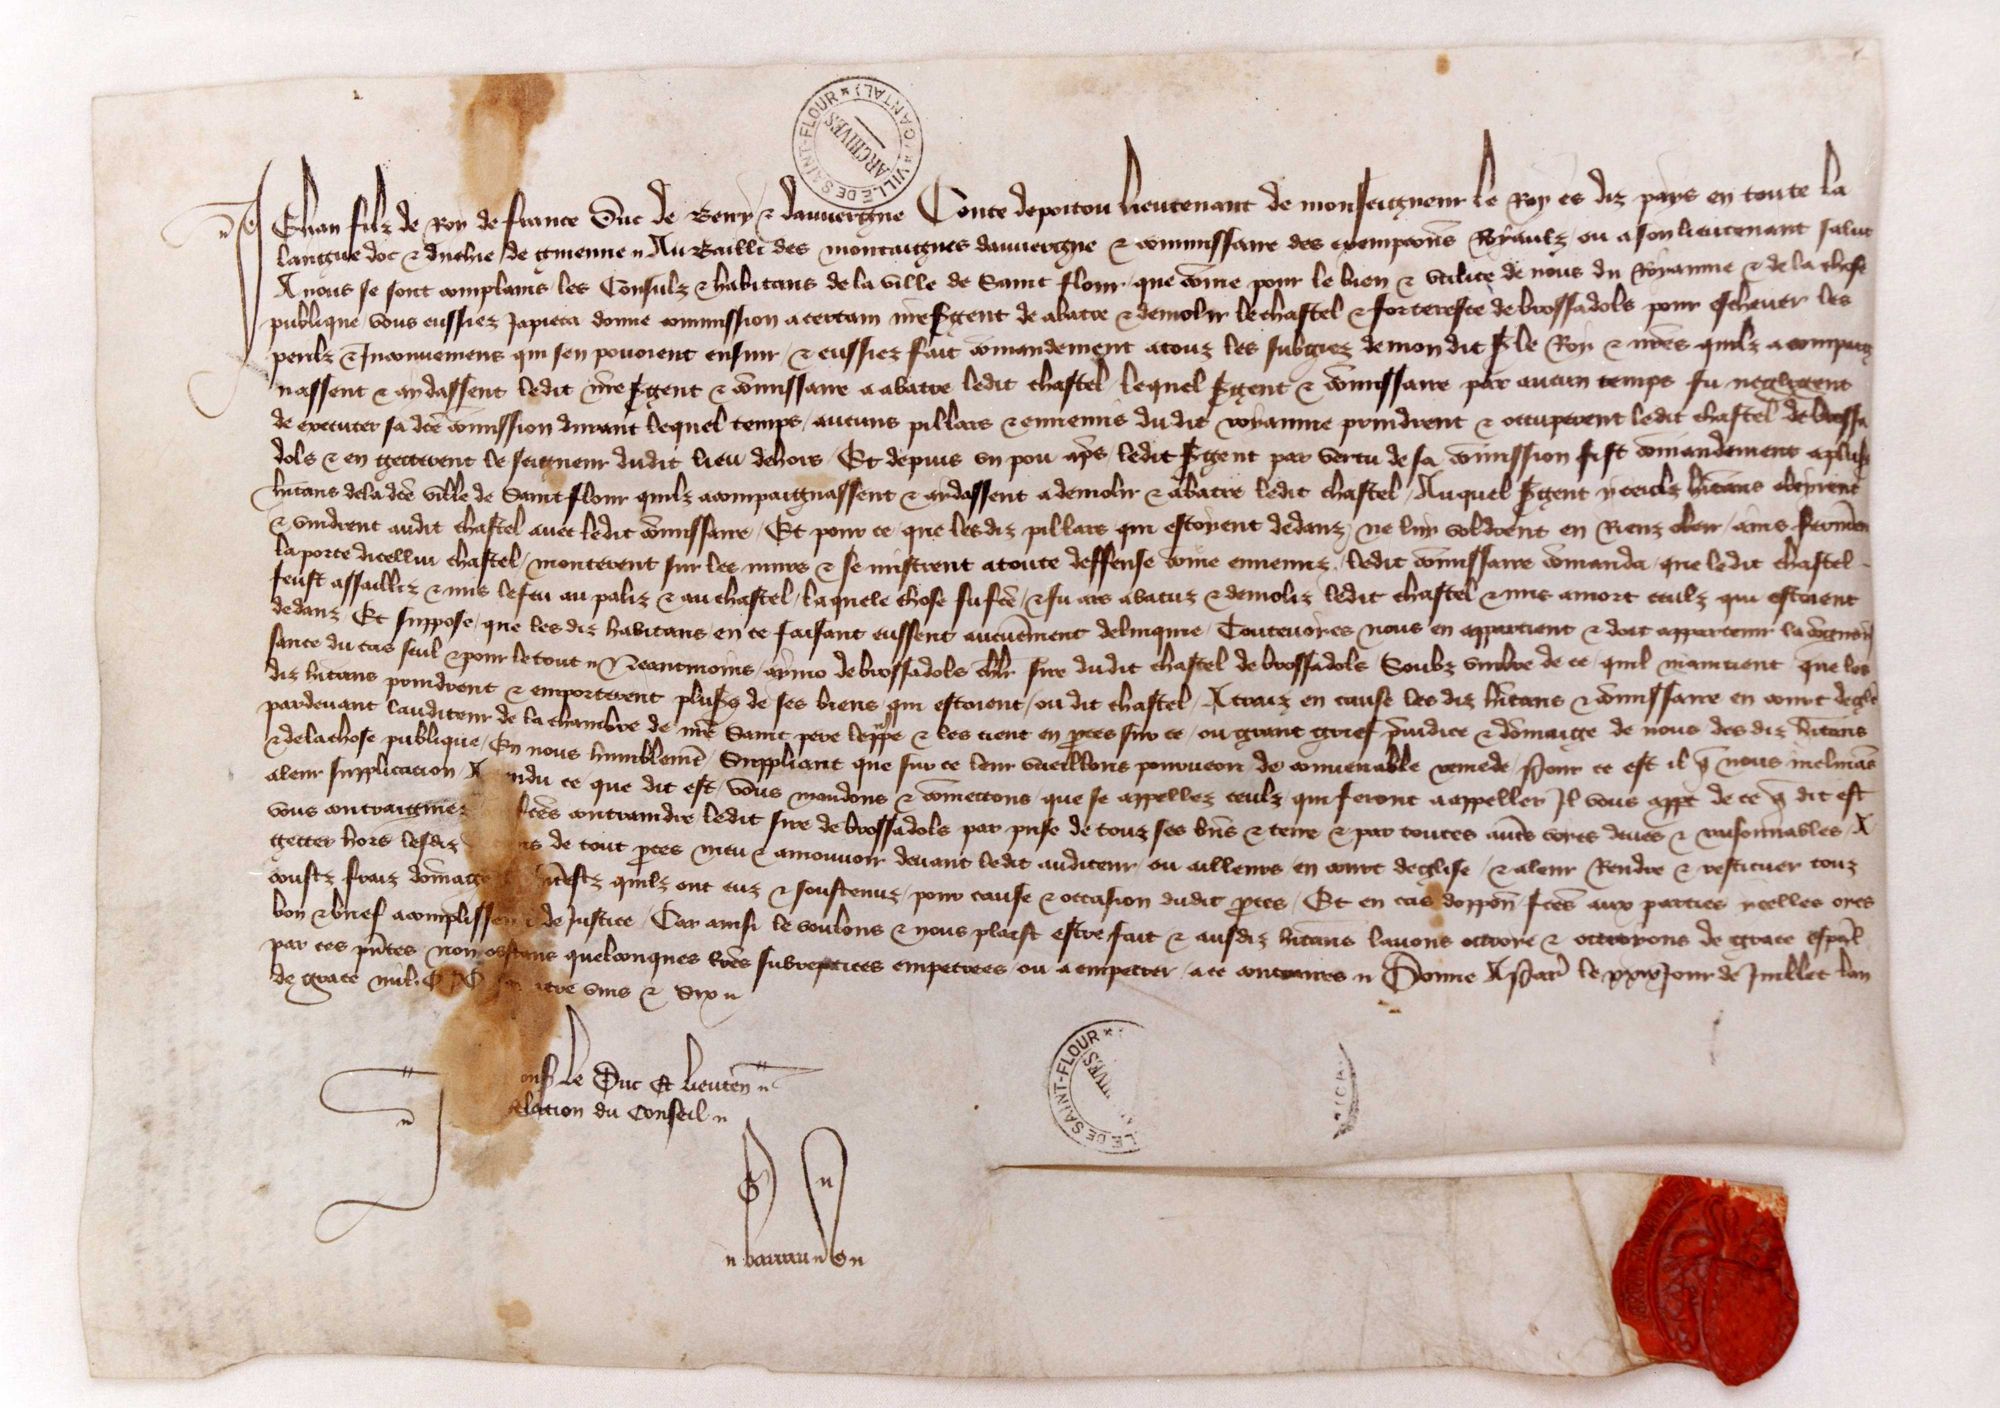 VILLE DE SAINT-FLOUR * (CANTAL) *
ARCHIVES
Jehan filz de Roy de france Duc de Berry & dauvergne Conte de poitou lieutenant de monseigneur le Roy es diz pays en toute la
langue doc & duchie de guienne Au Bailli des montaignes dauvergne & commissaire des exempcions Royaulz ou a son lieutenant salut
A nous se sont complains les Consulz & habitans de la ville de Saint flour que cōme pour le bien & utilite de nous du Royaume & de la chose
publique vous eussiez Japieca donne commission a certain nr̄e s̄gent de abatre & demolir le chastel & forteresce de brossadols pour eschever les
perilz & Inconveniens qui sen povoient ensuir & eussiez fait cōmandement a touz les subgiez de mon dit s̄ le Roy & nr̄es quilz acompaig
nassent & aydassent ledit nr̄e s̄gent & cōmissaire a abatre ledit chastel lequel s̄gent & cōmissaire par aucun temps fu negligent
de executer sa dc̄e cōmission durant lequel temps aucuns pillars & ennemis du dit royaume prindrent & occuperent ledit chastel de brossa
dols & en getterent le seigneur dudit lieu dehors Et depuis un pou ap̄s ledit s̄gent par vertu de sa cōmission fist cōmandement a plus̄
hītans de la dc̄e ville de Saint flour quilz acompaignassent & aydassent a demolir & abatre ledit chastel Auquel s̄gent yceulz hītans obeirent
& vindrent audit chastel avec ledit cōmissaire Et pour ce que les diz pillars qui estoient dedanz ne luy voldrent en Rienz obeir ains fermerēt
la porte dicellui chastel monterent sur les murs & se mistrent a toute deffense cōme ennemis ledit cōmissaire cōmanda que ledit chastel
feust assailliz & mis le feu au paliz & au chastel laquele chose fu fc̄e & fu ars abatuz & demoliz ledit chastel & mis a mort ceulz qui estoient
dedanz Et suppose que les diz habitans en ce faisant eussent aucunemēnt delinquie Toutevoies nous en appartient & doit appartenir la cōgnois
sance du cas seul & pour le tout Neantmoins aymo de brossadols ch̄lr sire dudit chastel de brossadols Soubz umbre de ce quil maintient que les
diz hītans prindrent & emporterent plus̄s de ses biens qui estoient ou dit chastel A traiz en cause les diz hītans & cōmissaire en court deglīe
pardevant lauditeur de la chambre de nr̄e Saint pere le pp̄e & les tient en p̄ces sur ce ou grant grief p̄iudice & dōmaige de nous des diz hītans
& de la chose publique En nous humblemēt Suppliant que sur ce leur vueillons pourveoir de convenable remede Pour ce est il q̄ nous inclināns
a leur supplication ndu ce que dit est vous mandons & cōmettons que se appellez ceulz qui feront a appeller Il vous appt de ce q̄ dit est
vous contraignez contraindre ledit sire de brossadols par prise de touz ses biēs & terre & par toutes autr̄s voies deues & raisonnables A
getter hors lesdiz de tout p̄ces meu & a mouvoir devant ledit auditeur ou ailleurs en court deglise & a leur Rendre & restituer touz
coustz fraiz dōmages quilz ont euz & soustenuz pour cause & occasion dudit p̄ces Et en cas dopp̄on fc̄es aux parties ycelles oyes
bon & brief acomplissement de Justice Car ainsi le voulons & nous plaist estre fait & ausdiz hītans lavons octroye & octroyons de grace esp̄al
par ces p̄ntes non obstans quelconques lr̄es subreptices empetrees ou a empetrer a ce contraires Donne A Par̄ le jour de Juillet lan
de grace mil vins & six
le Duc Et lieuten̄
lation du Conseil
SAINT-FLOUR *